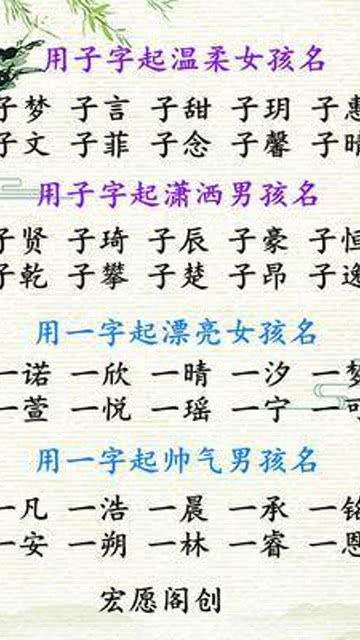 用子字起温柔女孩名
子梦 子言 子甜 子玥 子惠
子文 子菲 子念 子馨 子晴
用子字起潇洒男孩名
子贤 子琦 子辰 子豪 子恒
子乾 子攀 子楚 子昂 子逸
用一字起漂亮女孩名
一诺 一欣 一晴 一汐 一梦
一萱 一悦 一瑶 一宁 一可
用一字起帅气男孩名
一凡 一浩 一晨 一承 一铭
一安 一朔 一林 一睿 一恩
宏愿阁创